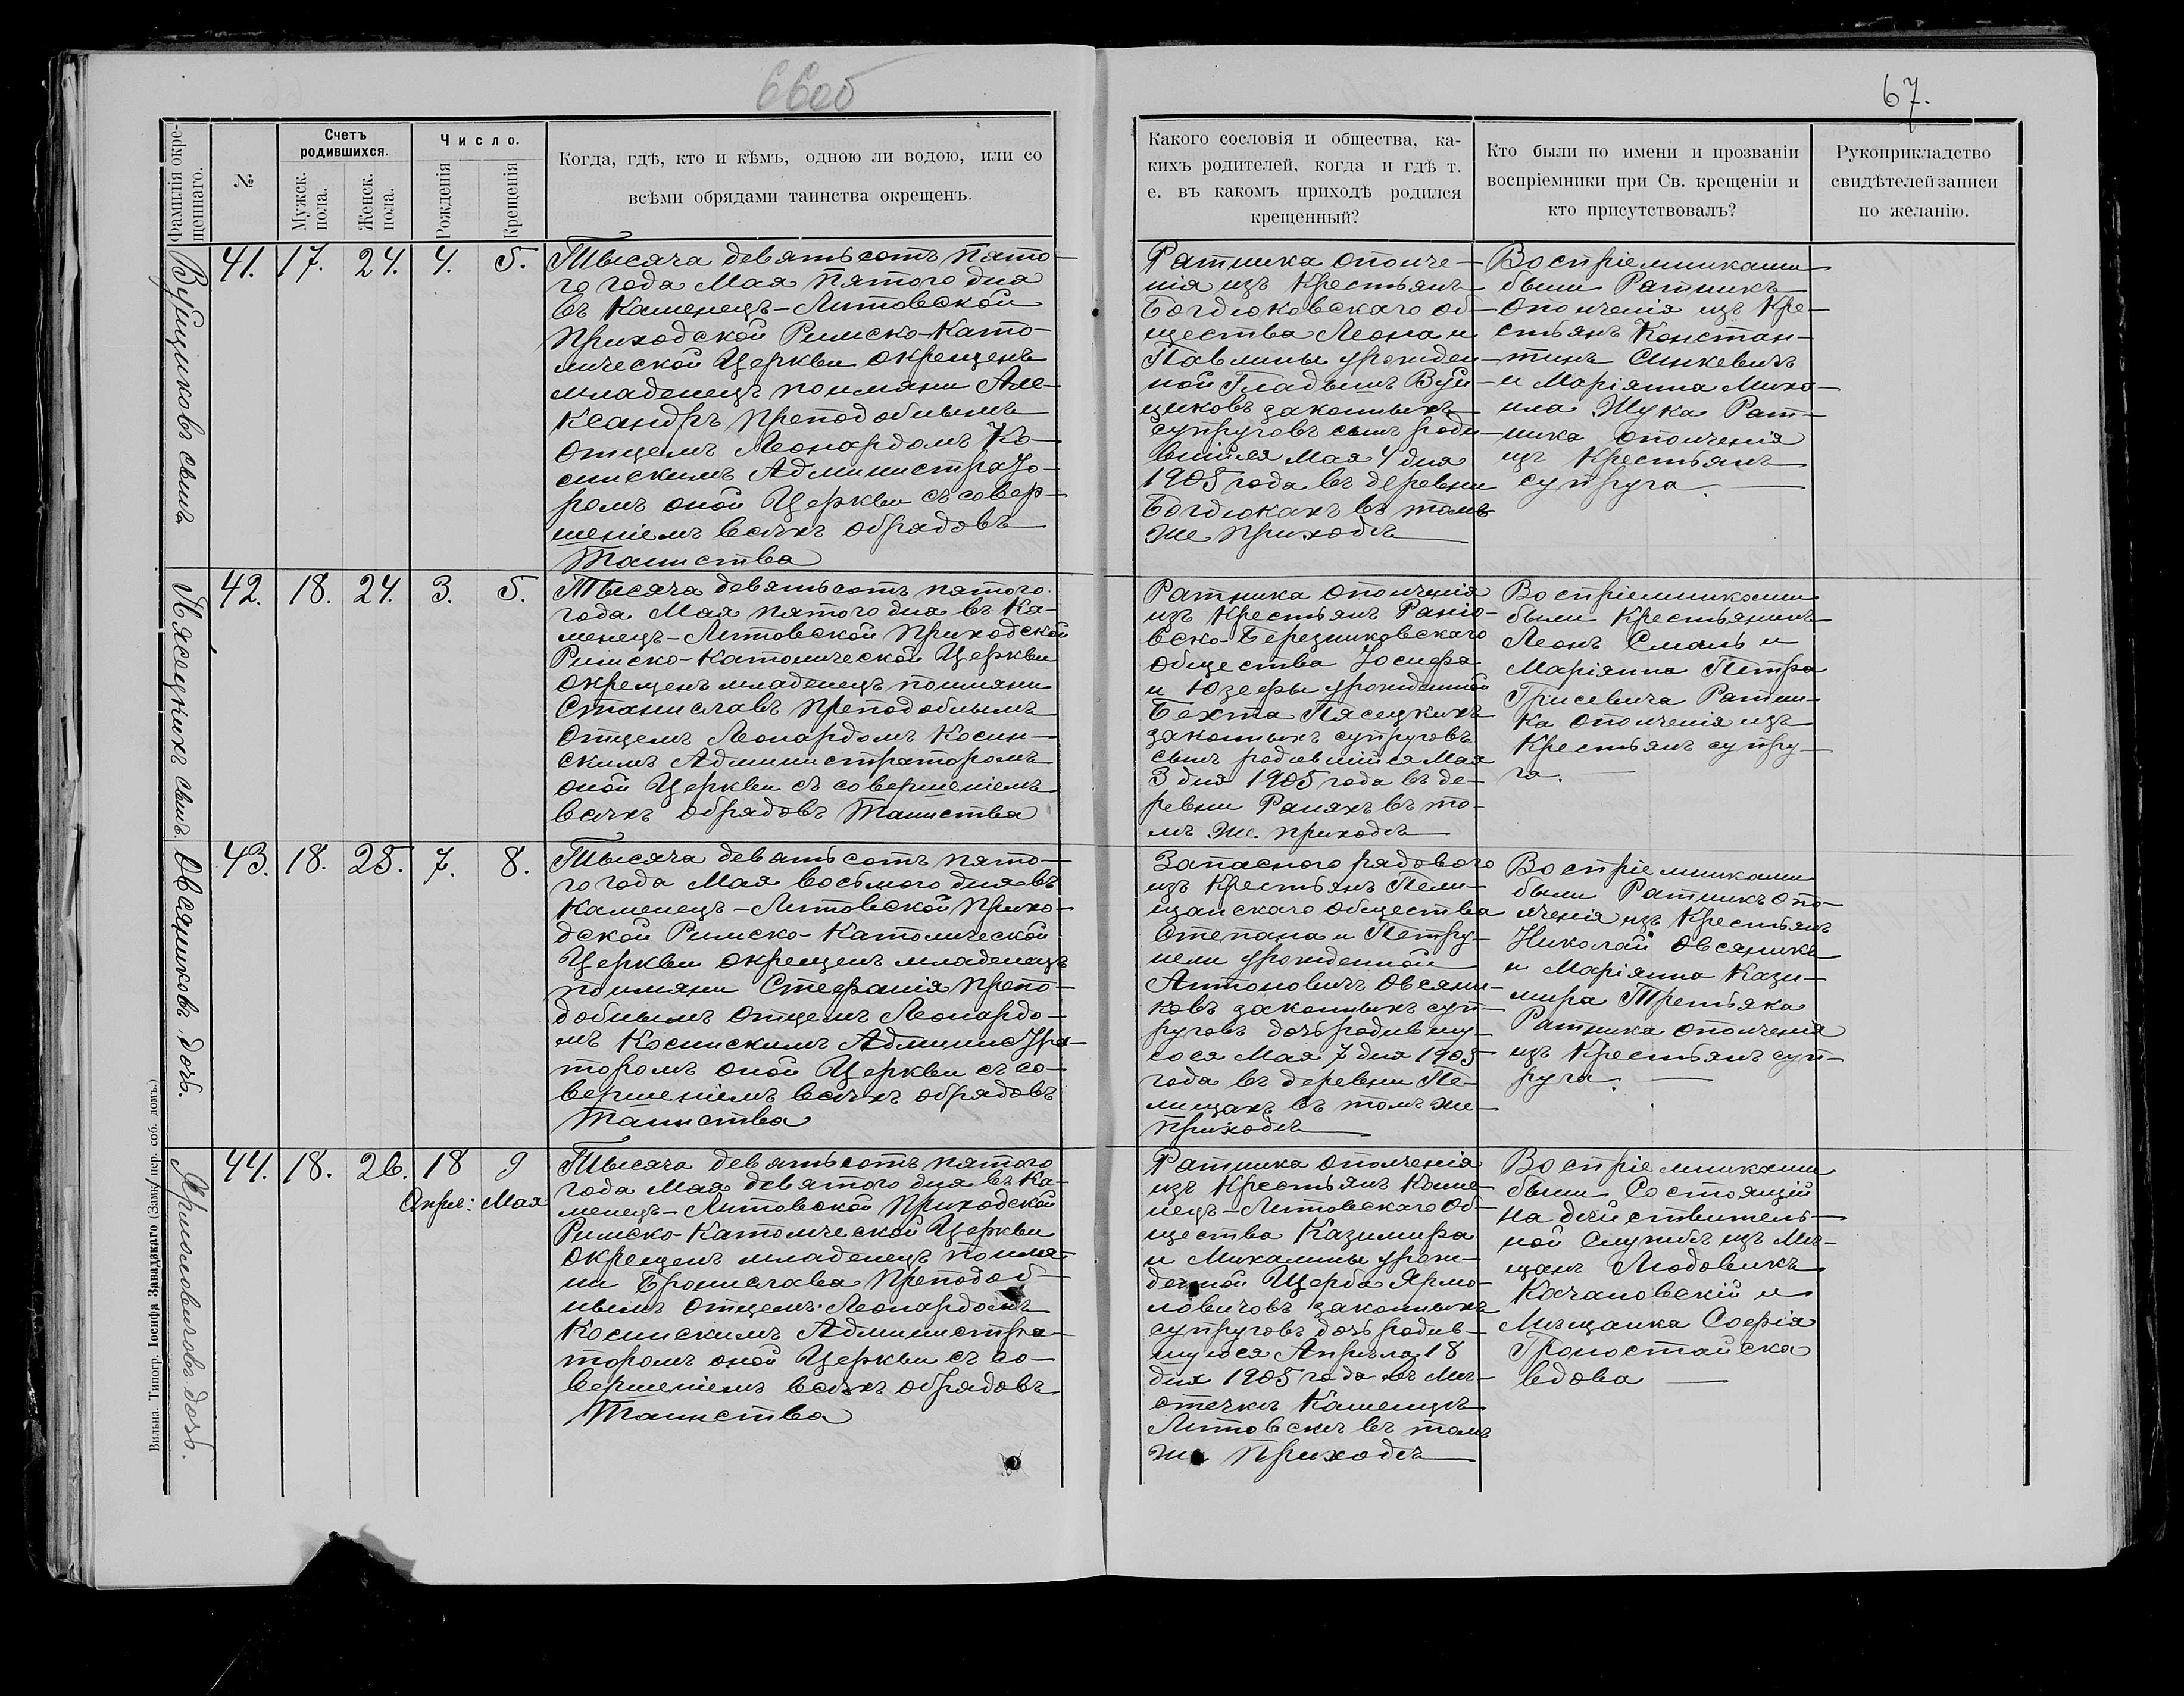 66об
67.
Фамилія окре-
щеннаго.
№
Счетъ
родившихся.
Мужск.
пола.
Женск.
пола.
Число.
Рожденія
Крещенія
Когда, гдѣ, кто и кѣмъ, одною ли водою, или со
всѣми обрядами таинства окрещенъ.
Какого сословія и общества, ка-
кихъ родителей, когда и гдѣ т.
е. въ какомъ приходѣ родился
крещенный?
Кто были по имени и прозванію
воспріемники при Св. крещеніи и
кто присутствовалъ?
Рукоприкладство
свидѣтелей записи
по желанію.
Вуйциковъ сынъ
41. 17. 24. 4. 5.
Тысяча девятьсотъ пято-
го года Мая пятого дня
въ Каменецъ-Литовской
Приходской Римско-Като-
лической Церкви окрещенъ
младенецъ по имяни Але-
ксандръ Преподобнымъ
Отцемъ Леонардомъ Ко-
синскимъ Администрато-
ромъ оной Церкви съ совер-
шеніемъ всѣхъ обрядовъ
Таинства
Ратника ополче-
нія изъ Крестьянъ
Богдюковскаго об-
щества Леона и
Павлины урожден-
ной Гладышъ Вуй-
циковъ законныхъ
супруговъ сынъ роди-
вшійся Мая 4 дня
1905 года въ деревни
Богдюкахъ въ томъ
же приходѣ
Воспріемниками
были Ратникъ
Ополченія изъ Кре-
стьянъ Констан-
тинъ Синкевичъ
и Маріянна Миха-
ила Жука Рат-
ника ополченія
изъ Крестьянъ
супруга.
Пясецкихъ сынъ.
42. 18. 24. 3. 5.
Тысяча девятьсотъ пятого
года Мая пятого дня въ Ка-
менецъ-Литовской Приходской
Римско-Католической Церкви
окрещенъ младенецъ по имяни
Станиславъ Преподобнымъ
Отцемъ Леонардомъ Косин-
скимъ Администраторомъ
оной Церкви съ совершеніемъ
всѣхъ обрядовъ Таинства
Ратника Ополченія
изъ Крестьянъ Раніо-
вско-Березниковскаго
общества Іосифа
и Юзефы урожденной
Бехта Пясецкихъ
законныхъ супруговъ
сынъ родившійся Мая
3 дня 1905 года въ де-
ревни Раняхъ въ то-
мъ же приходѣ
Воспріемниками
были Крестьянинъ
Леонъ Смаль и
Маріянна Петра
Грисевича Ратни-
ка ополченія изъ
Крестьянъ супру-
га.
Овсяниковъ дочь.
43. 18. 25. 7. 8.
Тысяча девятьсотъ пято-
го года Мая восьмого дня въ
Каменецъ-Литовской Прихо-
дской Римско-Католической
Церкви окрещенъ младенецъ
по имяни Стефанія Препо-
добнымъ Отцемъ Леонардо-
мъ Косинскимъ Администра-
торомъ оной Церкви съ со-
вершеніемъ всѣхъ обрядовъ
Таинства
Запасного рядового
изъ Крестьянъ Пели-
щанскаго Общества
Степана и Петру-
нели урожденной
Антоновичъ Овсяни-
ковъ законныхъ суп-
руговъ дочь родившу-
юся Мая 7 дня 1905
года въ деревни Пе-
лищахъ въ томъ же
приходѣ
Воспріемниками
были Ратникъ опо-
лченія изъ Крестьянъ
Николай Овсяникъ
и Маріянна Кази-
мира Третьяка
Ратника ополченія
изъ Крестьянъ суп-
руга.
Ярмоловичовъ дочь.
44. 18. 26. 18 9
Апрѣл: Мая
Тысяча девятьсотъ пятого
года Мая девятого дня въ Ка-
менецъ-Литовской Приходской
Римско-Католической Церкви
окрещенъ младенецъ по имя-
ни Бронислава Преподоб-
нымъ Отцемъ Леонардомъ
Косинскимъ Администра-
торомъ оной Церкви съ со-
вершеніемъ всѣхъ обрядовъ
Таинства
Ратника Ополченія
изъ Крестьянъ Каме-
нецъ-Литовскаго Об-
щества Казимира
и Михалины урож-
денной Щерба Ярмо-
ловичовъ законныхъ
супруговъ дочь родив-
шуюся Апрѣля 18
дня 1905 года въ Мѣ-
стечкѣ Каменцѣ
Литовскѣ въ томъ
же приходѣ
Воспріемниками
были Состоящій
на дѣйствитель-
ной Службѣ изъ Мѣ-
щанъ Людовикъ
Качановскій и
Мѣщанка Софія
Гропостайска
вдова
Вильна. Типогр. Іосифа Завадзкаго (Замк. пер. соб. домъ.)